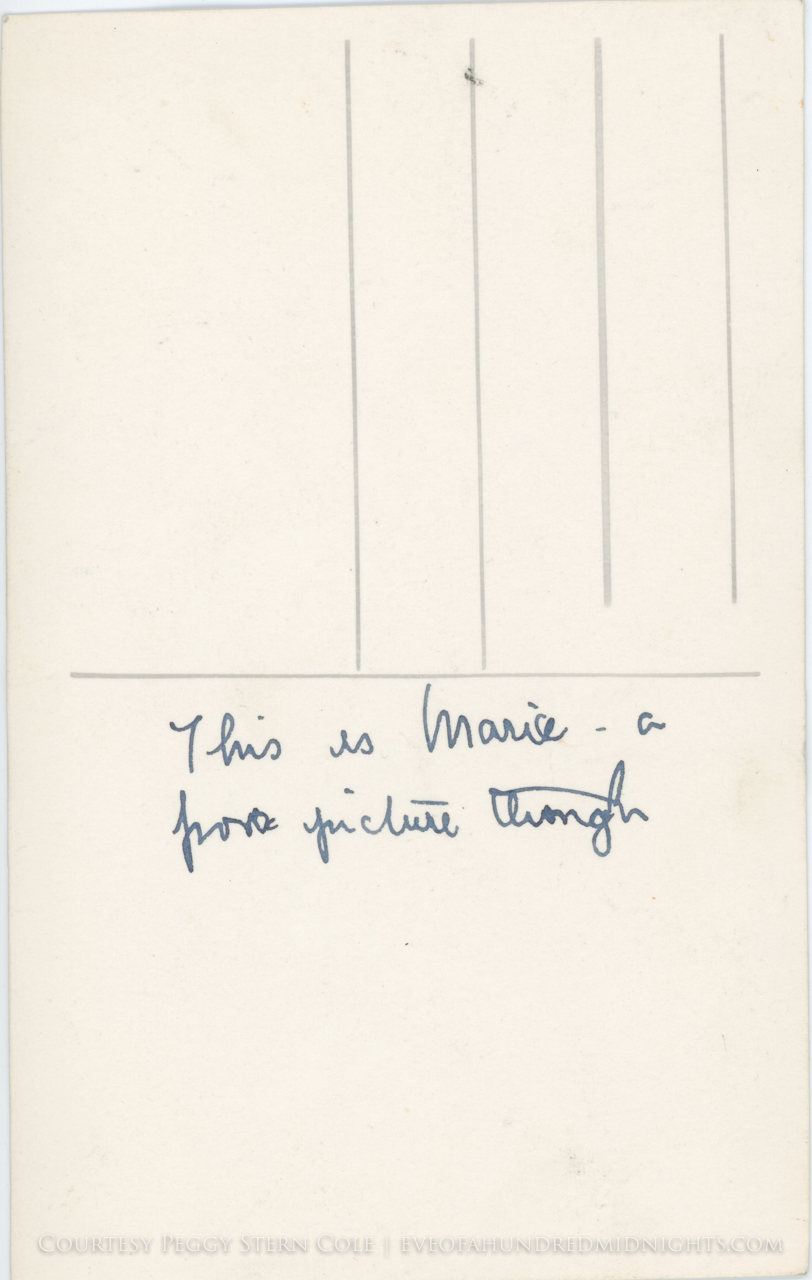 This is Marie - a
poor picture though
COURTESY PEGGY STERN COLE | EVEOFAHUNDREDMIDNIGHTS.COM